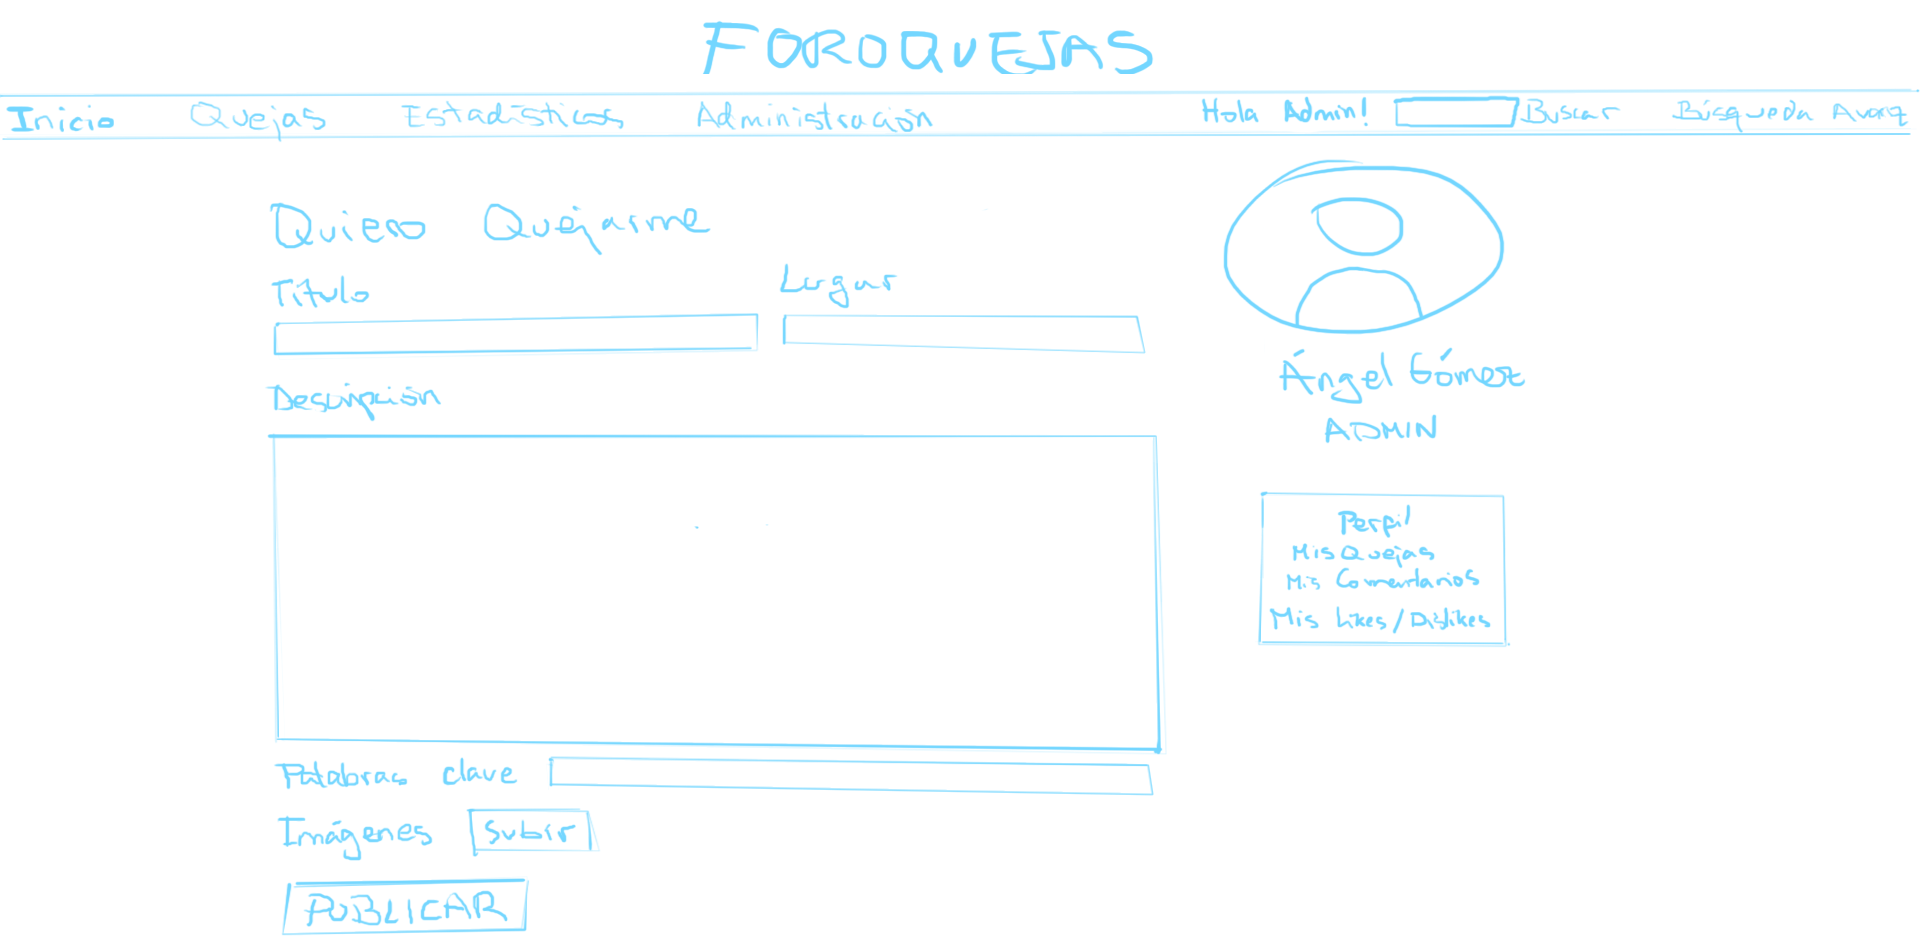 FOROQUEJAS
Inicio Quejas Estadísticas Administración Hola Admin! Buscar Búsqueda Avanz
Quiero Quejarme
Título Lugar
Descripción
Palabras clave
Imágenes Subir
PUBLICAR
Ángel Gómez
ADMIN
Perfil
Mis Quejas
Mis Comentarios
Mis Likes/Dislikes